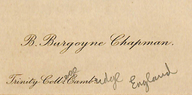 B. Burgoyne Chapman.
Trinity Coll. Cambridge England